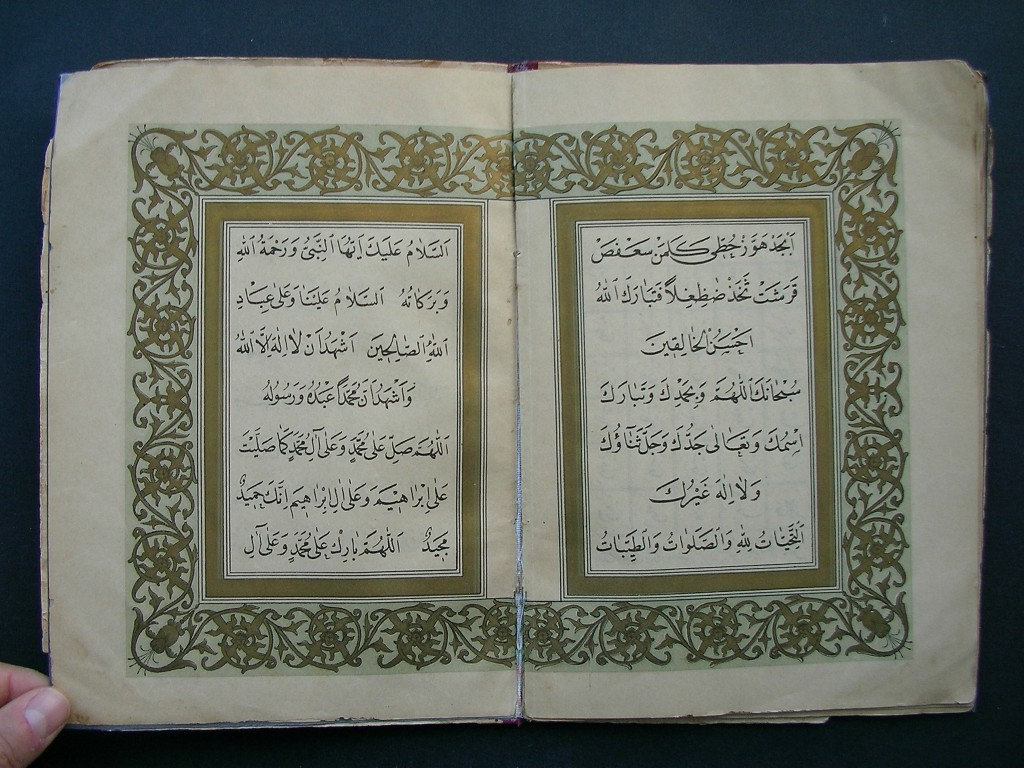 اَبْجَدْ هَوَّزْ حُطّى كَلَمَنْ سَعْفَصْ
قَرَشَتْ ثَخَذْ ضَظَغِلاً فَتَبَارَكَ اللهُ
اَحْسَنُ الْخَالِقِينَ
سُبْحَانَكَ اللّٰهُمَّ وَبِحَمْدِكَ وَتَبَارَكَ
اسْمُكَ وَتَعَالٰى جَدُّكَ وَجَلَّ ثَنَاؤُكَ
وَلَا اِلٰهَ غَيْرُكَ
اَلتَّحِيَّاتُ لِلّٰهِ وَالصَّلَوَاتُ وَالطَّيِّبَاتُ
اَلسَّلَامُ عَلَيْكَ اَيُّهَا النَّبِىُّ وَرَحْمَةُ اللهِ
وَبَرَكَاتُهُ اَلسَّلَامُ عَلَيْنَا وَعَلٰى عِبَادِ
اللهِ الصَّالِحِينَ اَشْهَدُ اَنْ لَا اِلٰهَ اِلَّا اللهُ
وَاَشْهَدُ اَنَّ مُحَمَّدًا عَبْدُهُ وَرَسُولُهُ
اَللّٰهُمَّ صَلِّ عَلٰى مُحَمَّدٍ وَعَلٰى اٰلِ مُحَمَّدٍ كَمَا صَلَّيْتَ
عَلٰى اِبْرَاهِيمَ وَعَلٰى اٰلِ اِبْرَاهِيمَ اِنَّكَ حَمِيدٌ
مَجِيدٌ اَللّٰهُمَّ بَارِكْ عَلٰى مُحَمَّدٍ وَعَلٰى اٰلِ